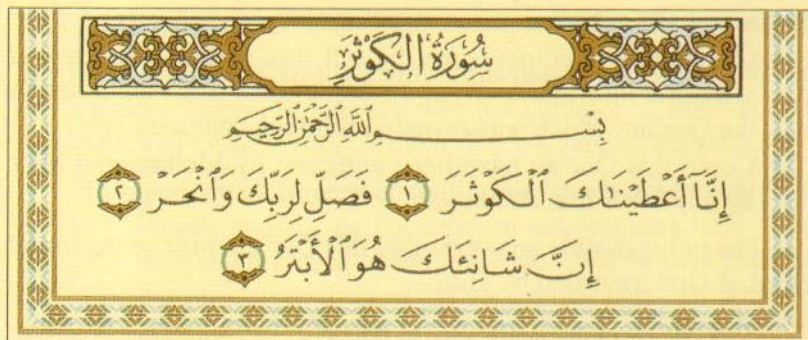 سُورَةُ الْكَوْثَرِ
بِسْمِ اللَّهِ الرَّحْمَٰنِ الرَّحِيمِ
إِنَّا أَعْطَيْنَاكَ الْكَوْثَرَ ١ فَصَلِّ لِرَبِّكَ وَانْحَرْ ٢
إِنَّ شَانِئَكَ هُوَ الْأَبْتَرُ ٣